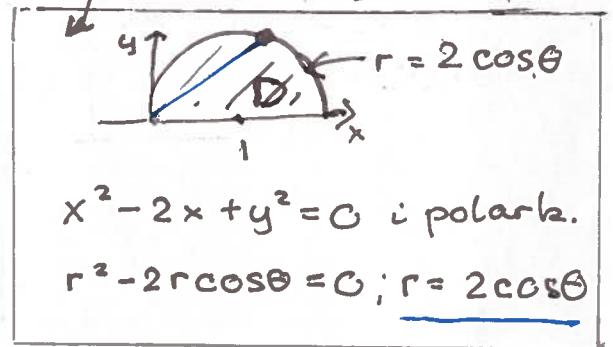 y
r = 2 cosθ
D
x
1
x² - 2x + y² = 0 i polark.
r² - 2r cosθ = 0 ; r = 2cosθ